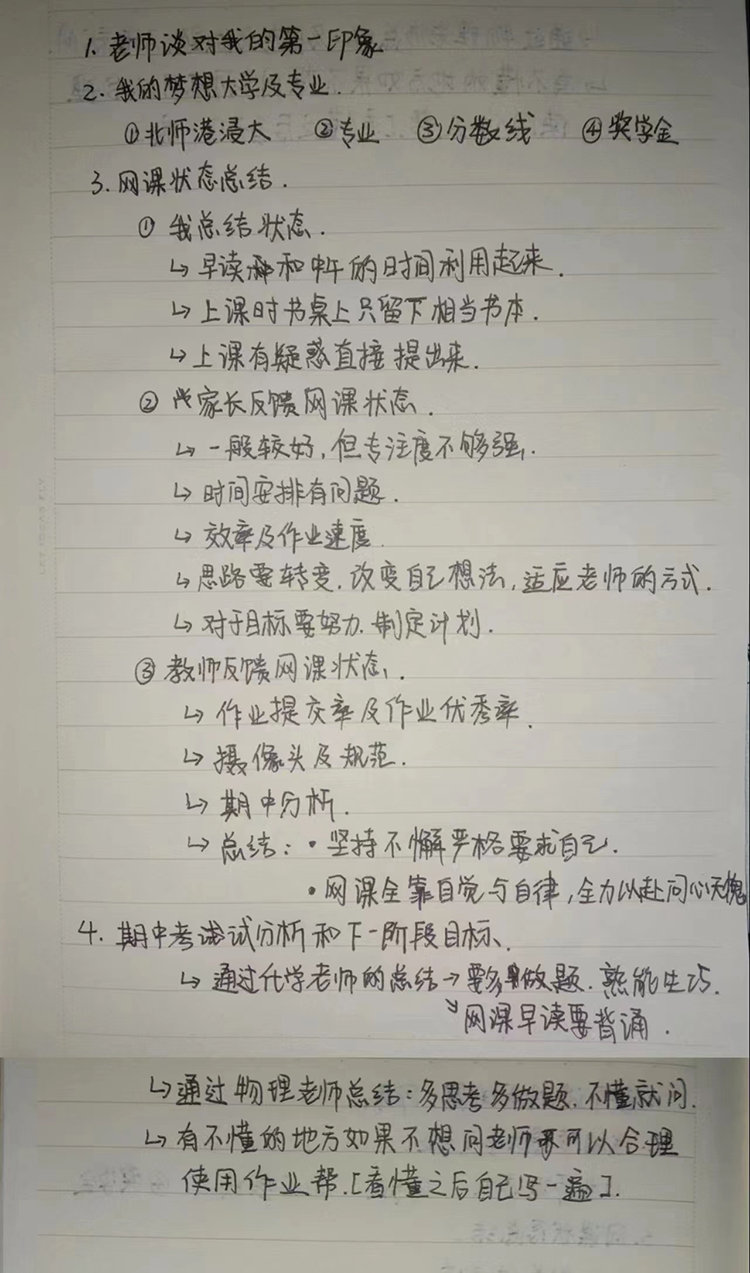 1. 老师谈对我的第一印象
2. 我的梦想大学及专业.
①北师港浸大 ②专业 ③分数线 ④奖学金
3. 网课状态总结.
① 我总结状态.
↳ 早读和中午的时间利用起来.
↳ 上课时书桌上只留下相当书本.
↳ 上课有疑惑直接提出来.
② 家长反馈网课状态.
↳ 一般较好,但专注度不够强.
↳ 时间安排有问题.
↳ 效率及作业速度
↳ 思路要转变.改变自己想法,适应老师的方式.
↳ 对于目标要努力.制定计划.
③ 教师反馈网课状态.
↳ 作业提交率及作业优秀率.
↳ 摄像头及规范.
↳ 期中分析.
↳ 总结: • 坚持不懈严格要求自己.
• 网课全靠自觉与自律,全力以赴问心无愧
4. 期中考试分析和下一阶段目标.
↳ 通过化学老师的总结→要多做题.熟能生巧.
↘网课早读要背诵.
↳ 通过物理老师总结:多思考多做题.不懂就问.
↳ 有不懂的地方如果不想问老师可以合理
使用作业帮.[看懂之后自己写一遍].